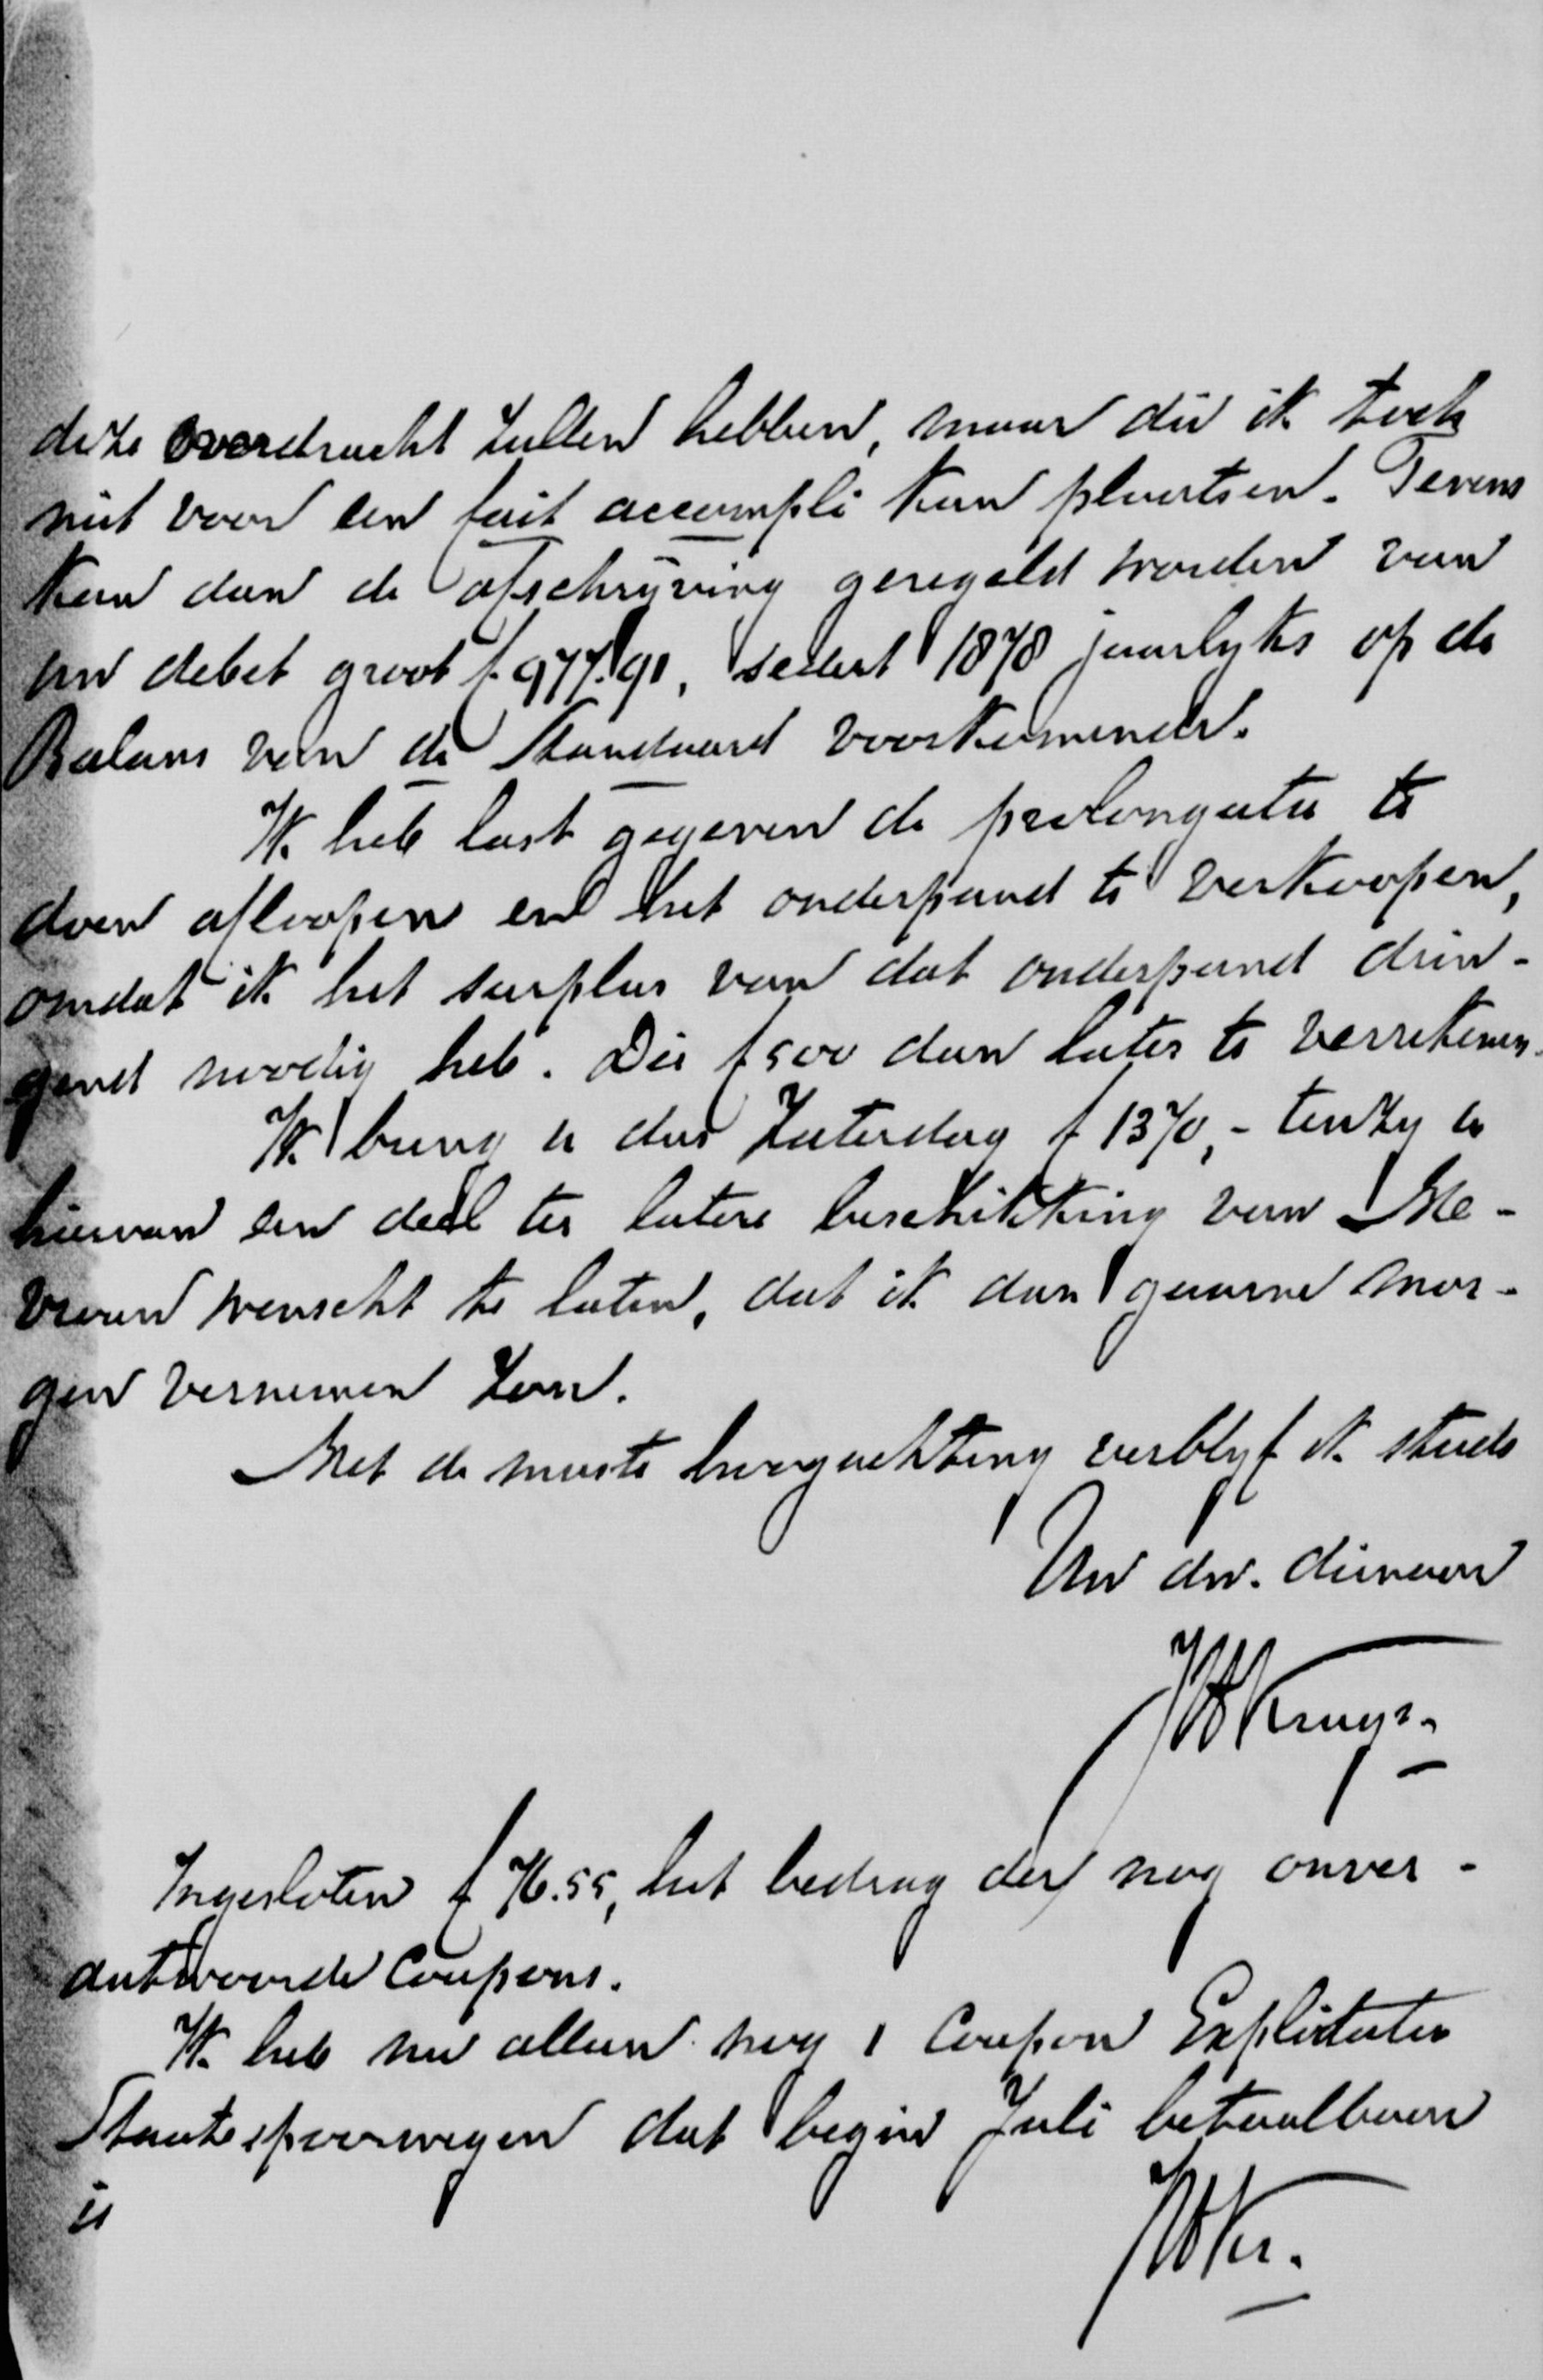 deze overdracht zullen hebben, maar die ik toch
niet voor een fait accompli kan plaatsen. Tevens
kan dan de afschrijving geregeld worden van
een debet groot f. 977.91, sedert 1878 jaarlyks op de
Balans van de Standaard voorkomende.
Ik heb last gegeven de prolongatie te
doen afloopen en het onderpand te verkoopen,
omdat ik het surplus van dat onderpand drin-
gend noodig heb. Die f 500 dan later te verrekenen.
Ik breng u dus Zaterdag f 1370,- tenzy u
hiervan een deel ter latere beschikking van Me-
vrouw wenscht te laten, dat ik dan gaarne mor-
gen vernemen zou.
Met de meeste hoogachting verblyf ik steeds
Uw dw. dienaar
JHKruyt.
Ingesloten f 76.55, het bedrag der nog onver-
antwoorde Coupons.
Ik heb nu alleen nog 1 Coupon Exploitatie
Staatsspoorwegen dat begin Juli betaalbaar
is